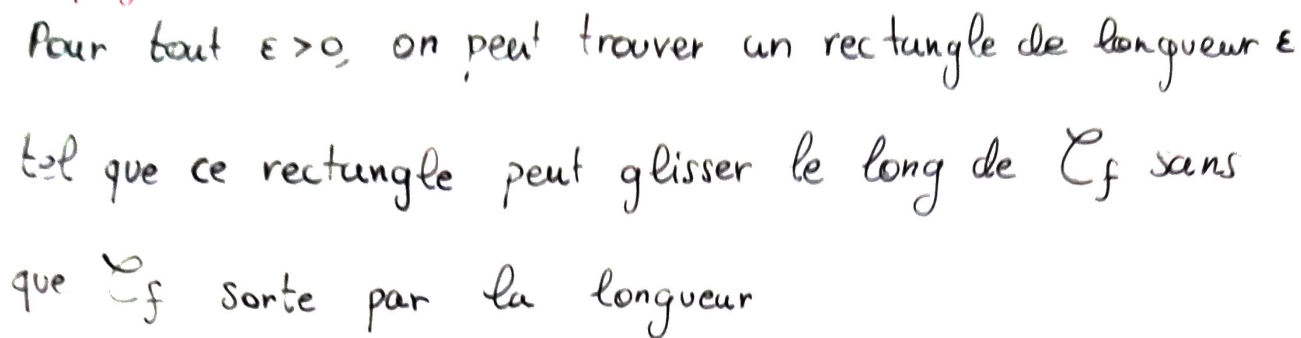 Pour tout ε>0, on peut trouver un rectangle de longueur ε
tel que ce rectangle peut glisser le long de 𝒞f sans
que 𝒞f sorte par la longueur